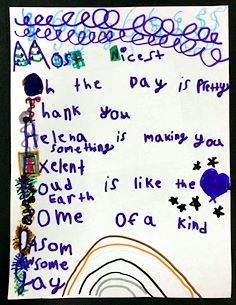 Most Nicest
Oh the Day is Pretty
Thank you
Helena is making you
something
Exelent
Roud is like the
Earth
Some Of a kind
Dasom
Awsome
Yay